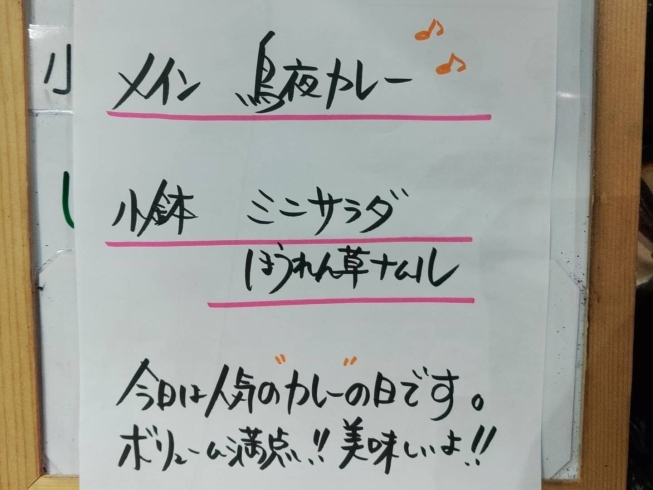 小
メイン 鳥夜カレー
小鉢 ミニサラダ
ほうれん草ナムル
今日は人気の"カレー"の日です。
ボリューム満点!!美味しいよ!!